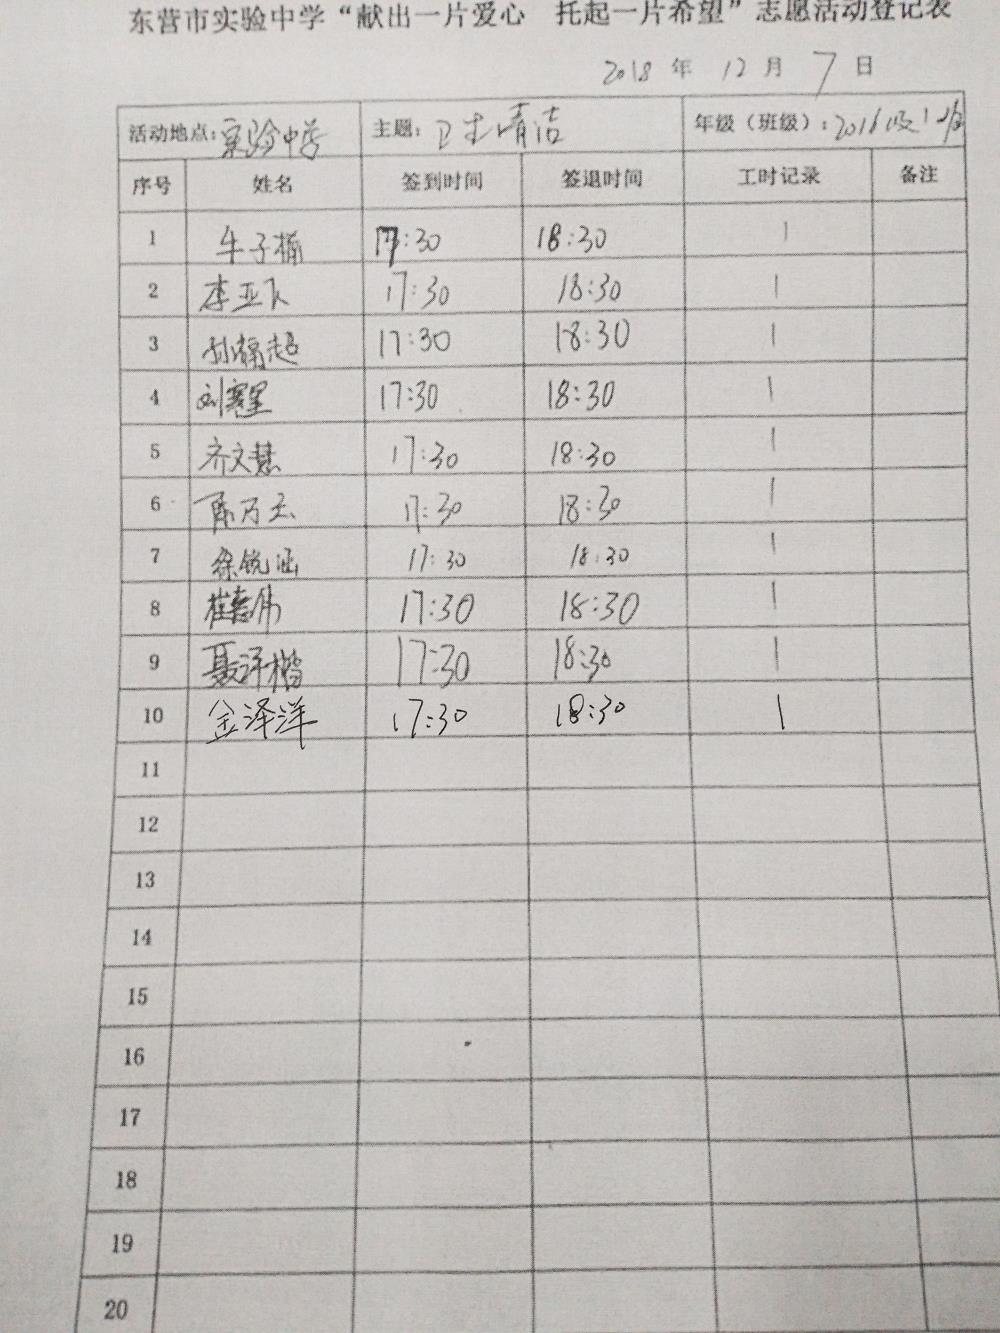 东营市实验中学“献出一片爱心 托起一片希望”志愿活动登记表
2018 年 12 月 7 日
活动地点：实验中学 主题：卫生清洁 年级（班级）：2016级1
序号 姓名 签到时间 签退时间 工时记录 备注
1 牛子楠 17:30 18:30 1
2 李亚飞 17:30 18:30 1
3 超 17:30 18:30 1
4 刘寒星 17:30 18:30 1
5 齐文慧 17:30 18:30 1
6 陈万 17:30 18:30 1
7 徐锐涵 17:30 18:30 1
8 崔春伟 17:30 18:30 1
9 聂泽楷 17:30 18:30 1
10 金泽洋 17:30 18:30 1
11
12
13
14
15
16
17
18
19
20